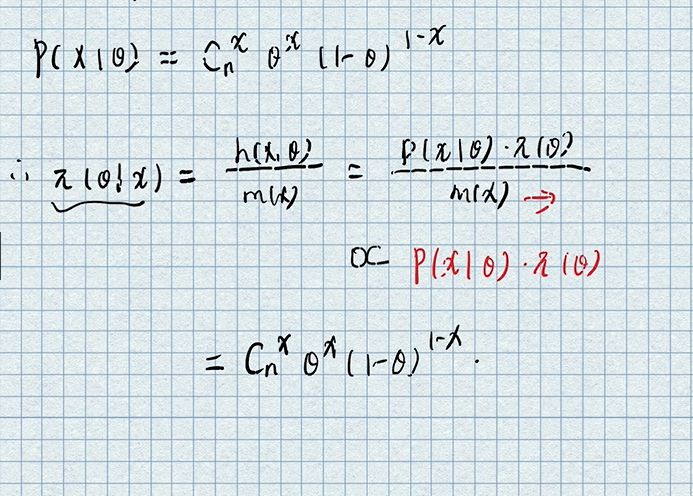 P(x|θ) = Cₙˣ θˣ (1-θ)¹⁻ˣ
∴ π(θ|x) = h(x,θ)/m(x) = P(x|θ)·π(θ)/m(x) →
∝ P(x|θ)·π(θ)
= Cₙˣ θˣ (1-θ)¹⁻ˣ.